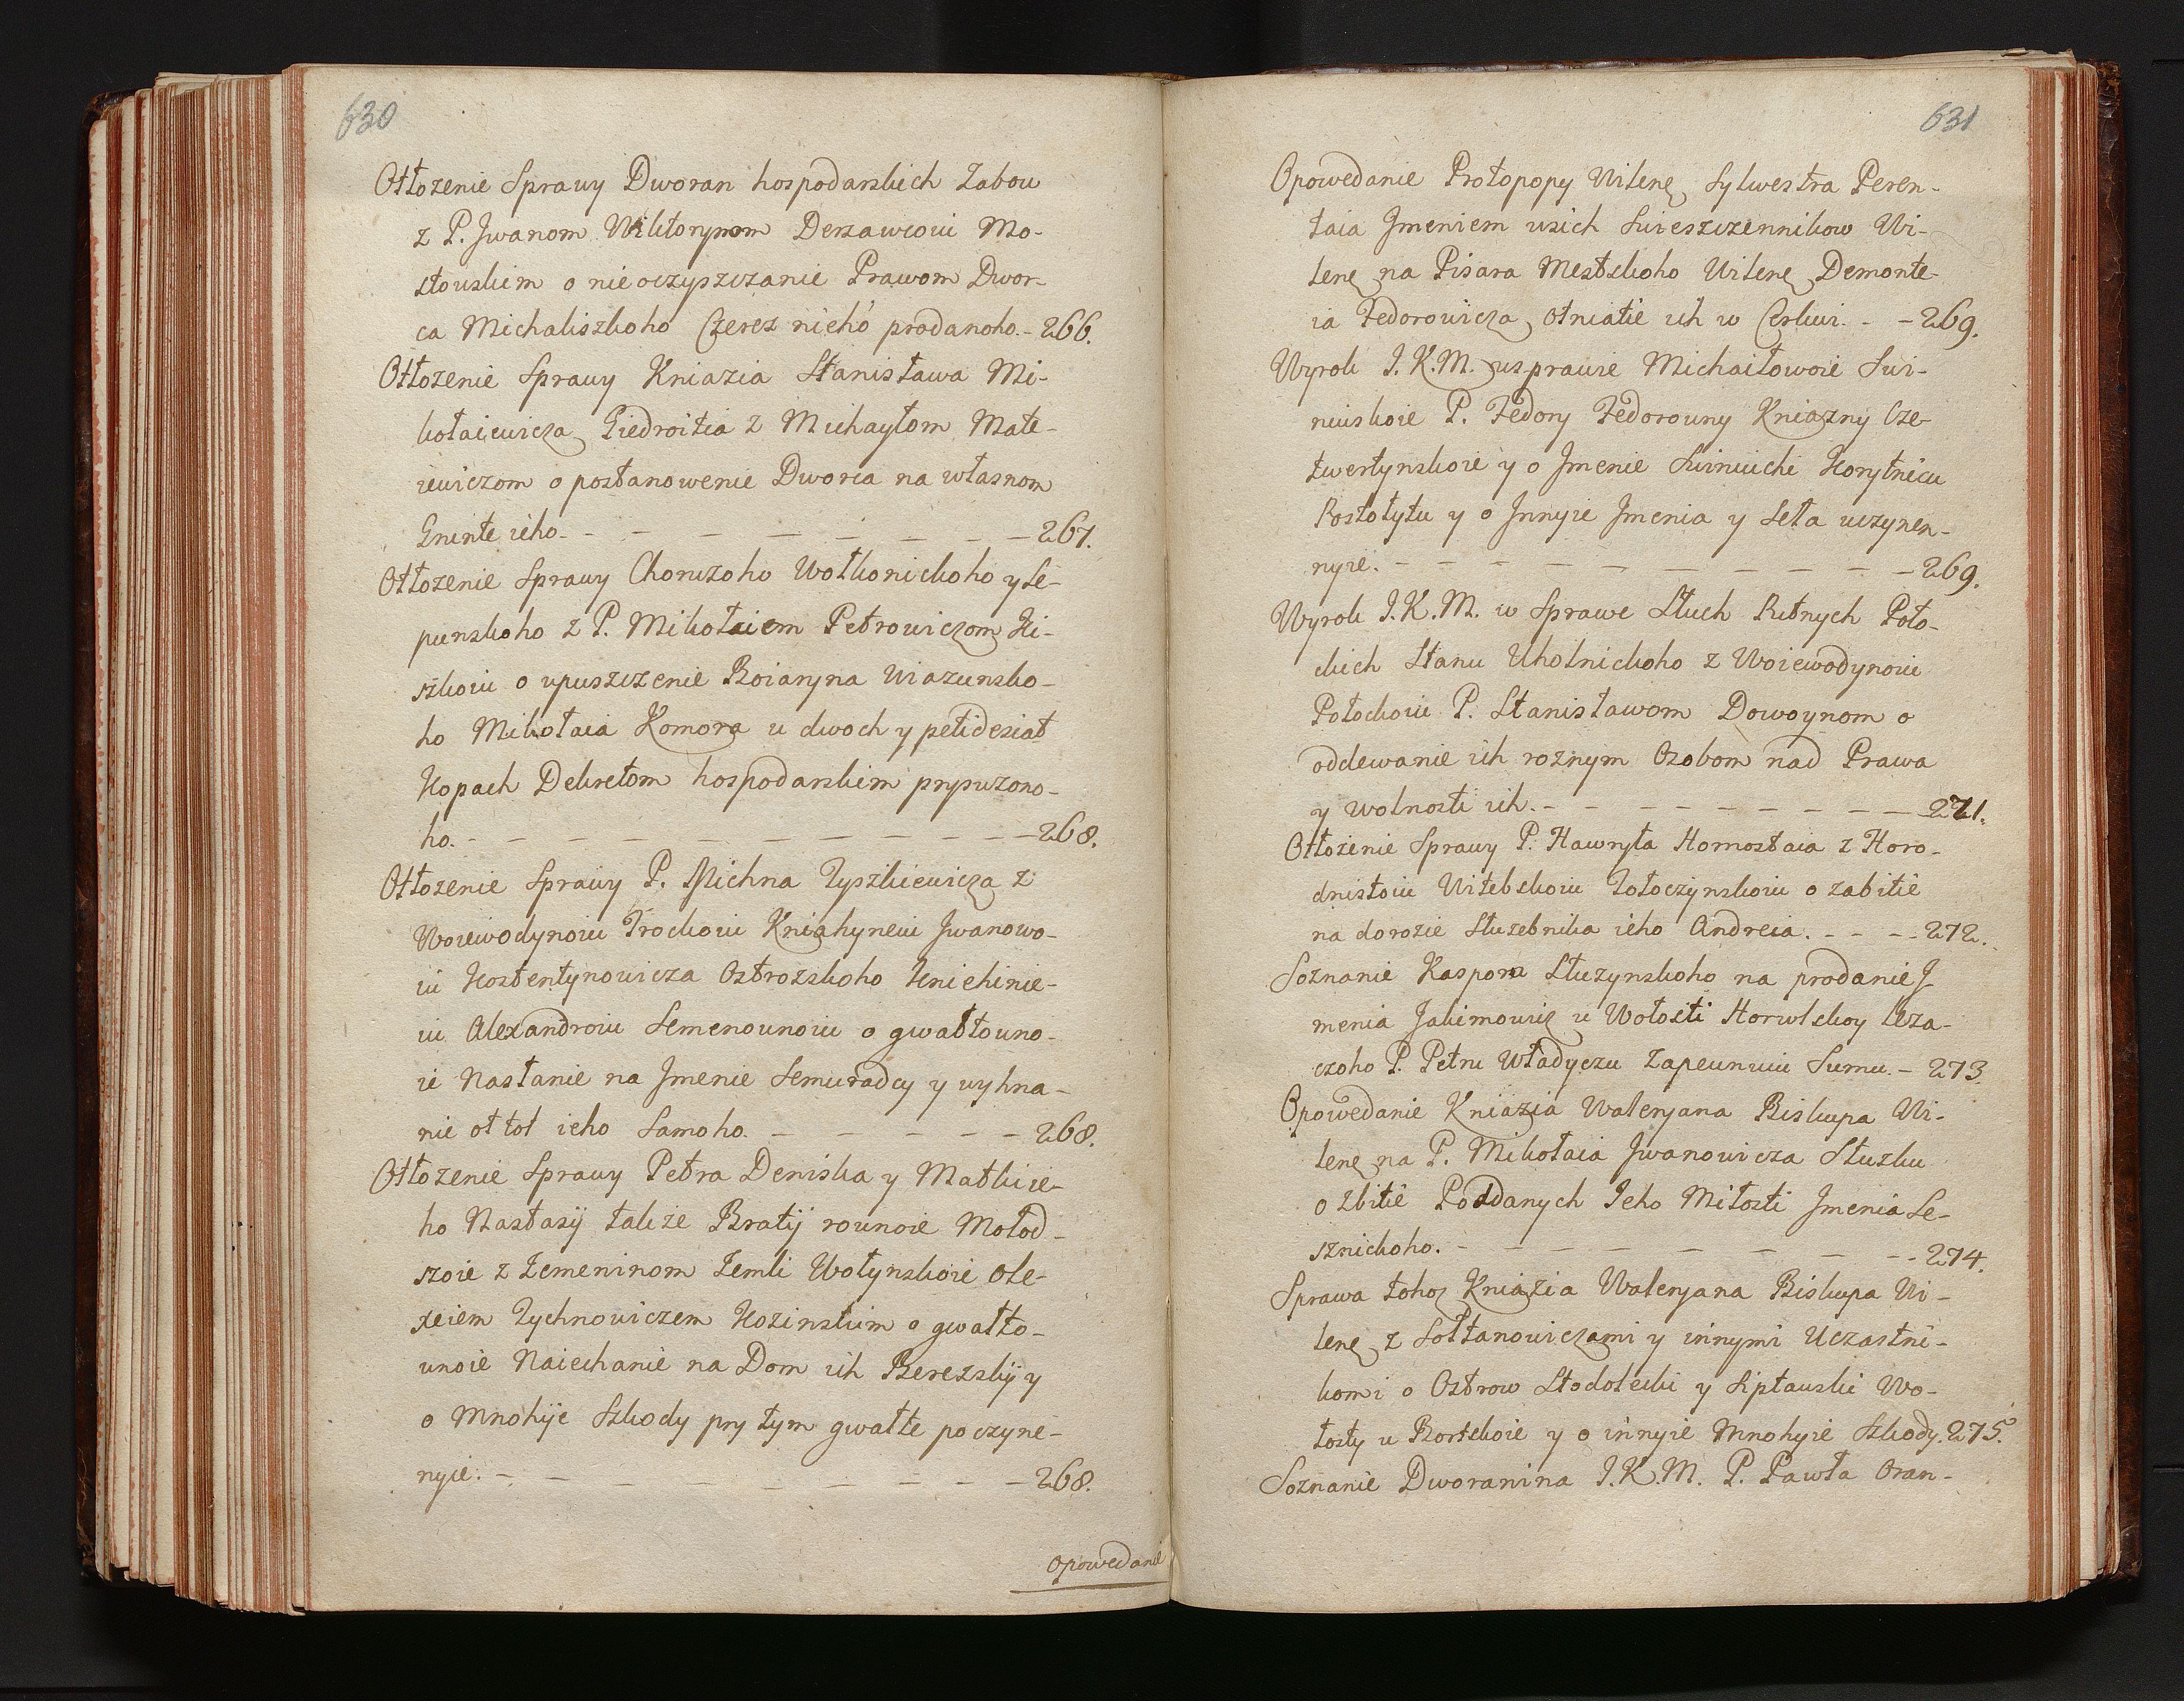 630
Otłozenie Sprawy Dworan hospodarskich Zabow
z P. Jwanom Wiktorynom Derzawcoiu Mo-
stouskim o nieoczyszczanie Prawom Dwor-
ca Michaliszkoho Czerez nieho prodanoho. - 266.
Otłozenie Sprawy Kniazia Stanisława Mi-
kołaiewicza Giedroitia z Michayłom Mate-
iewiczom o postanowenie Dworca na własnom
Grunte ieho. - - - - - - - - 267.
Otłozenie Sprawy Choruzoho Wołkonickoho y Le-
punskoho z P. Mikołaiem Petrowiczom Ki-
szkoiu o upuszczenie Boiaryna Wiazunsko-
ho Mikołaia Komora u dwoch y petidesiat
Kopach Dekretom hospodarskim prypuzono-
ho. - - - - - - - - - - 268.
Otłozenie Sprawy P. Michna Tyszkiewicza z
Woiewodynoiu Trockoiu Kniahyneiu Jwanowo-
iu Kostentynowicza Ostrozskoho Kniehinie-
iu Alexandroiu Semenounoiu o gwałtouno-
ie Nasłanie na Jmenie Semuradcy y wyhna-
nie ottol ieho Samoho. - - - - - 268.
Otłozenie Sprawy Petra Deniska y Matki ie-
ho Nastasij takze Bratij rounoie Mołod-
szoie z Zemeninom Zemli Wołynskoie Ole-
xeiem Tychnowiczem Kozinskim o gwałto-
unoie Naiechanie na Dom ich Berezskij y
o Mnohije Szkody pry tym gwałte poczyne-
nyie. - - - - - - - - - 268.
Opowedanie
631
Opowedanie Protopopy Wilene Sylwestra Peren-
taia Jmeniem wsich Swieszczennikow Wi-
lene na Pisara Mestskoho Wilene Demonte-
ia Fedorowicza otniatie ich w Cerkwi. - - 269.
Wyrok J.K.M. usprawie Michaiłowoie Swi-
niuskoie P. Fedory Fedorouny Kniazny Cze-
twertynskoie y o Jmenie Swiniuchi Korytnicu
Postołytu y o Jnnyie Jmenia y Seła uczynen-
nyie. - - - - - - - - - - 269.
Wyrok J.K.M. w Sprawe Słuch Putnych Poło-
ckich Stanu Uholnickoho z Woiewodynoiu
Połockoiu P. Stanisławom Dowoynom o
oddewanie ich roznym Osobom nad Prawa
y wolnosti ich. - - - - - - - - - 271.
Otłozenie Sprawy P. Hawryła Hornostaia z Horo-
dnistoiu Witebskoiu Tołoczynskoiu o zabitie
na dorozie Słuzebnika ieho Andreia. - - - 272.
Soznanie Kaspora Słuzynskoho na prodanie J-
menia Jakimowicz u Wołosti Horwlskoy leza-
czoho P. Petru Władyczu Zapeunuiu Sumu. - 273.
Opowedanie Kniazia Waleryana Biskupa Wi-
lene na P. Mikołaia Jwanowicza Słuzku
o Zbitie Poddanych Jeho Miłosti Jmenia Le-
sznickoho. - - - - - - - - 274.
Sprawa tohoz Kniazia Waleryana Biskupa Wi-
lene z Sołtanowiczami y innymi Uczastni-
komi o Ostrow Stodolecki y Liptauski Wo-
łosty u Bortskoie y o innyie Mnohyie Szkody. 275.
Soznanie Dworanina J.K.M. P. Pawła Oran-